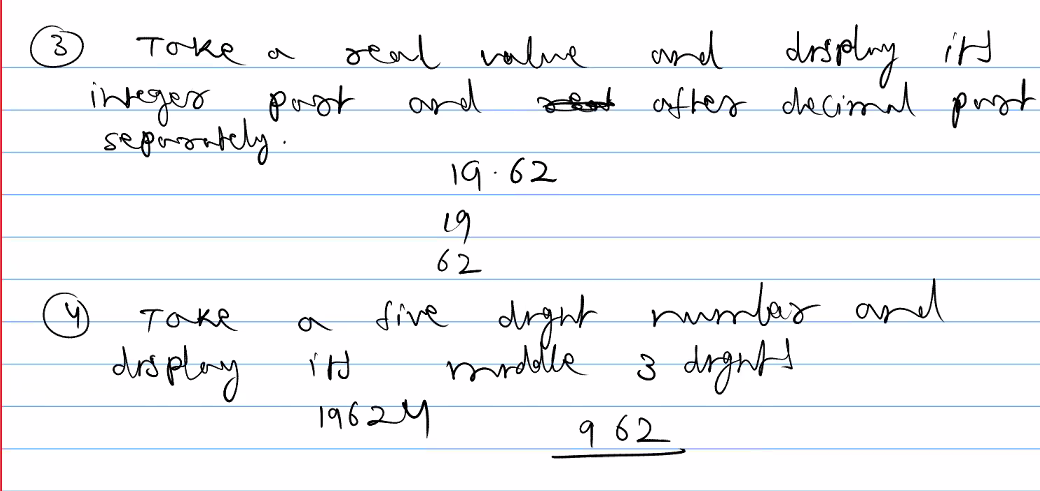 ③ Take a real value and display its
integer part and after decimal part
separately.
19.62
19
62
④ Take a five digit number and
display its middle 3 digits
19624 962